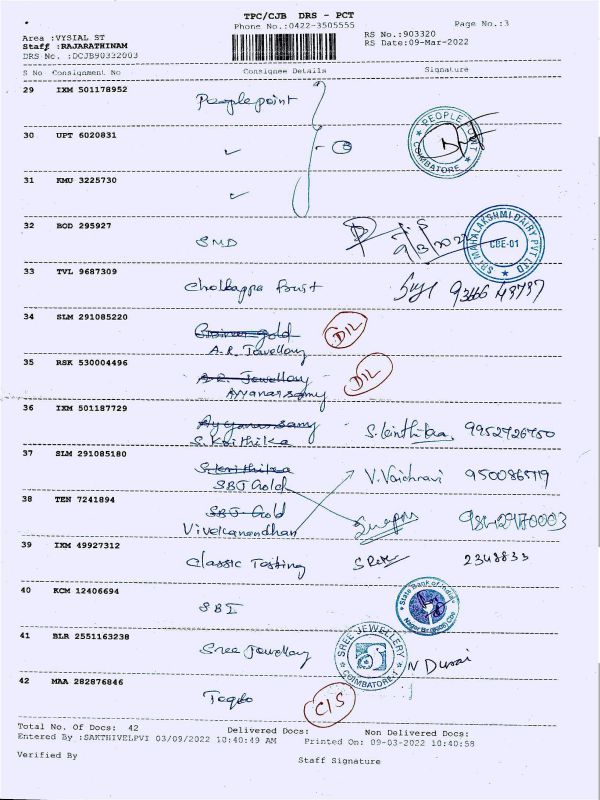 TPC/CJB DRS - PCT
Phone No.:0422-3505555
Page No.:3
Area :VYSIAL ST
Staff :RAJARATHINAM
DRS No. :DCJB90332003
RS No.:903320
RS Date:09-Mar-2022
S No Consignment No Consignee Details Signature
29 IXM 501178952 Peoplepoint
30 UPT 6020831
PEOPLE POINT
COIMBATORE
31 KMU 3225730
32 BOD 295927 SMD
9/3/2022
SRI MAHALAKSHMI DAIRY PVT LTD
CBE-01
33 TVL 9687309
34 SLM 291085220 gold D/L
A.R. Jewellery
35 RSK 530004496 A.R. Jewellery D/L
Ayyanarsamy
36 IXM 501187729 Ayyanarsamy 9952926750
S. Krithika
37 SLM 291085180 S. Krithika V. Vaishnavi
SBJ Gold
38 TEN 7241894 SBJ Gold
Vivekanandhan
39 IXM 49927312 Classic Testing 2348833
40 KCM 12406694 SBI
State Bank of India
41 BLR 2551163238 Sree Jewellery N Durai
SREE JEWELLERY
COIMBATORE-1
42 MAA 282876846 C/S
Total No. Of Docs: 42 Delivered Docs: Non Delivered Docs:
Entered By :SAKTHIVELPVI 03/09/2022 10:40:49 AM Printed On: 09-03-2022 10:40:58
Verified By
Staff Signature